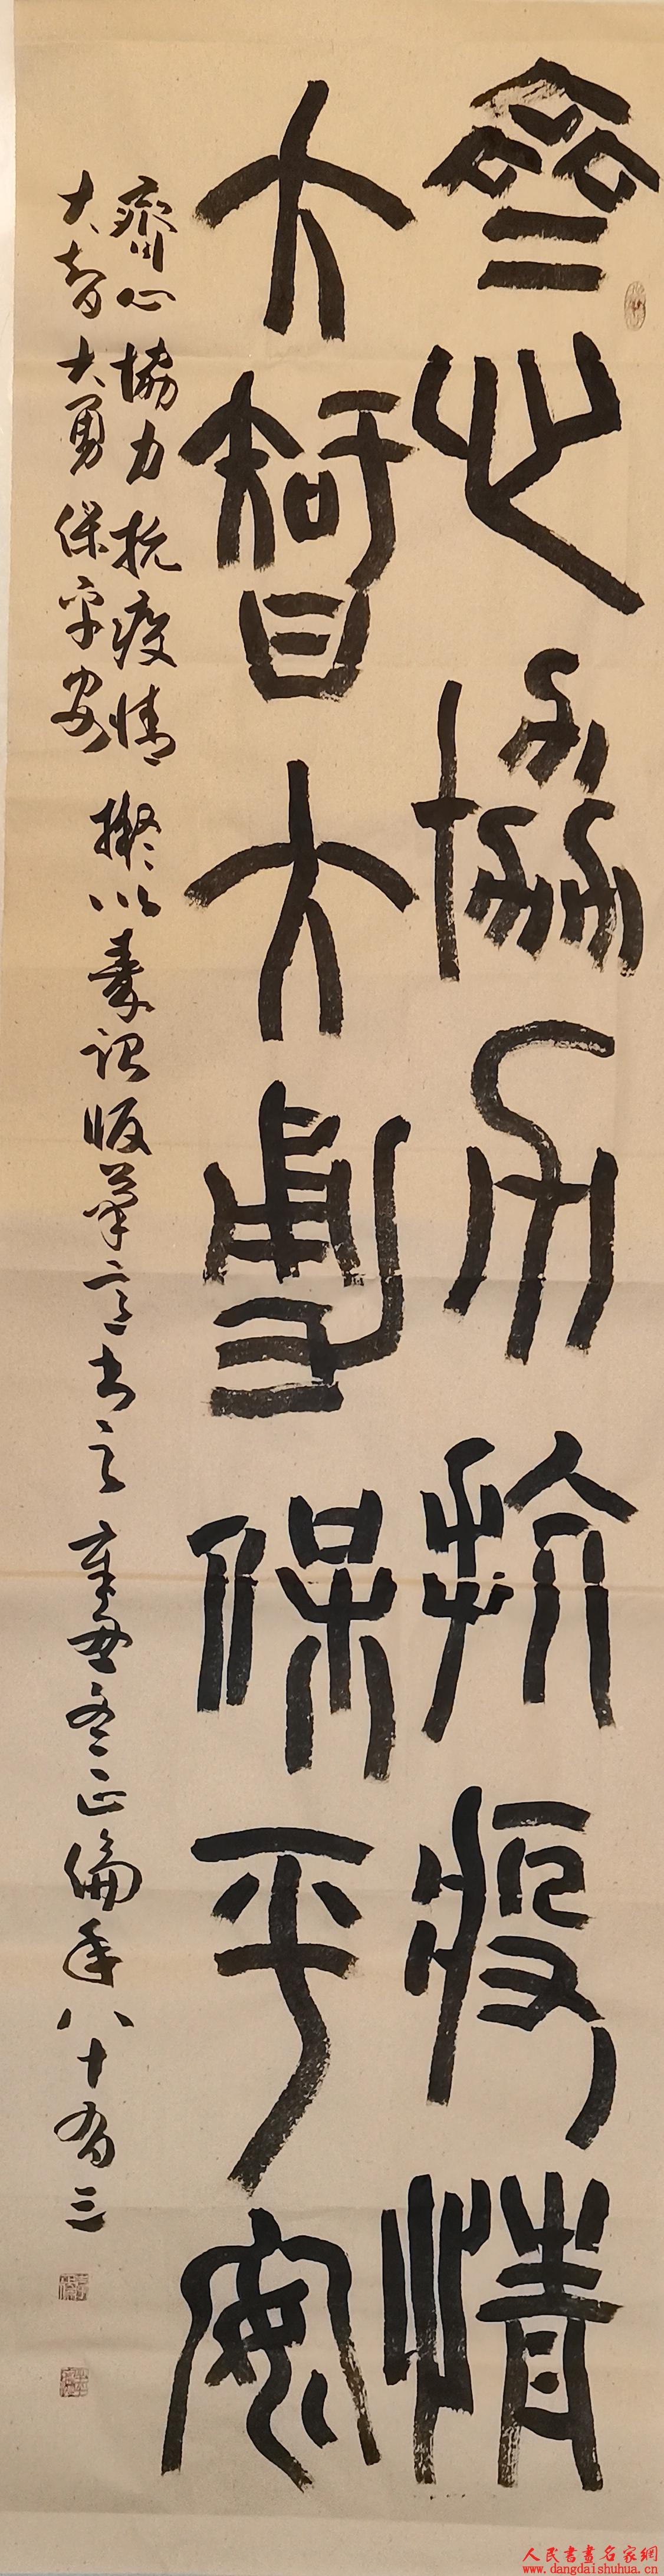 齊心協力抗疫情
大智大勇保平安
齊心協力抗疫情
大智大勇保平安
擬以秦詔版筆意书之 辛丑冬正倫年八十有三
人民書畫名家網
www.dangdaishuhua.cn